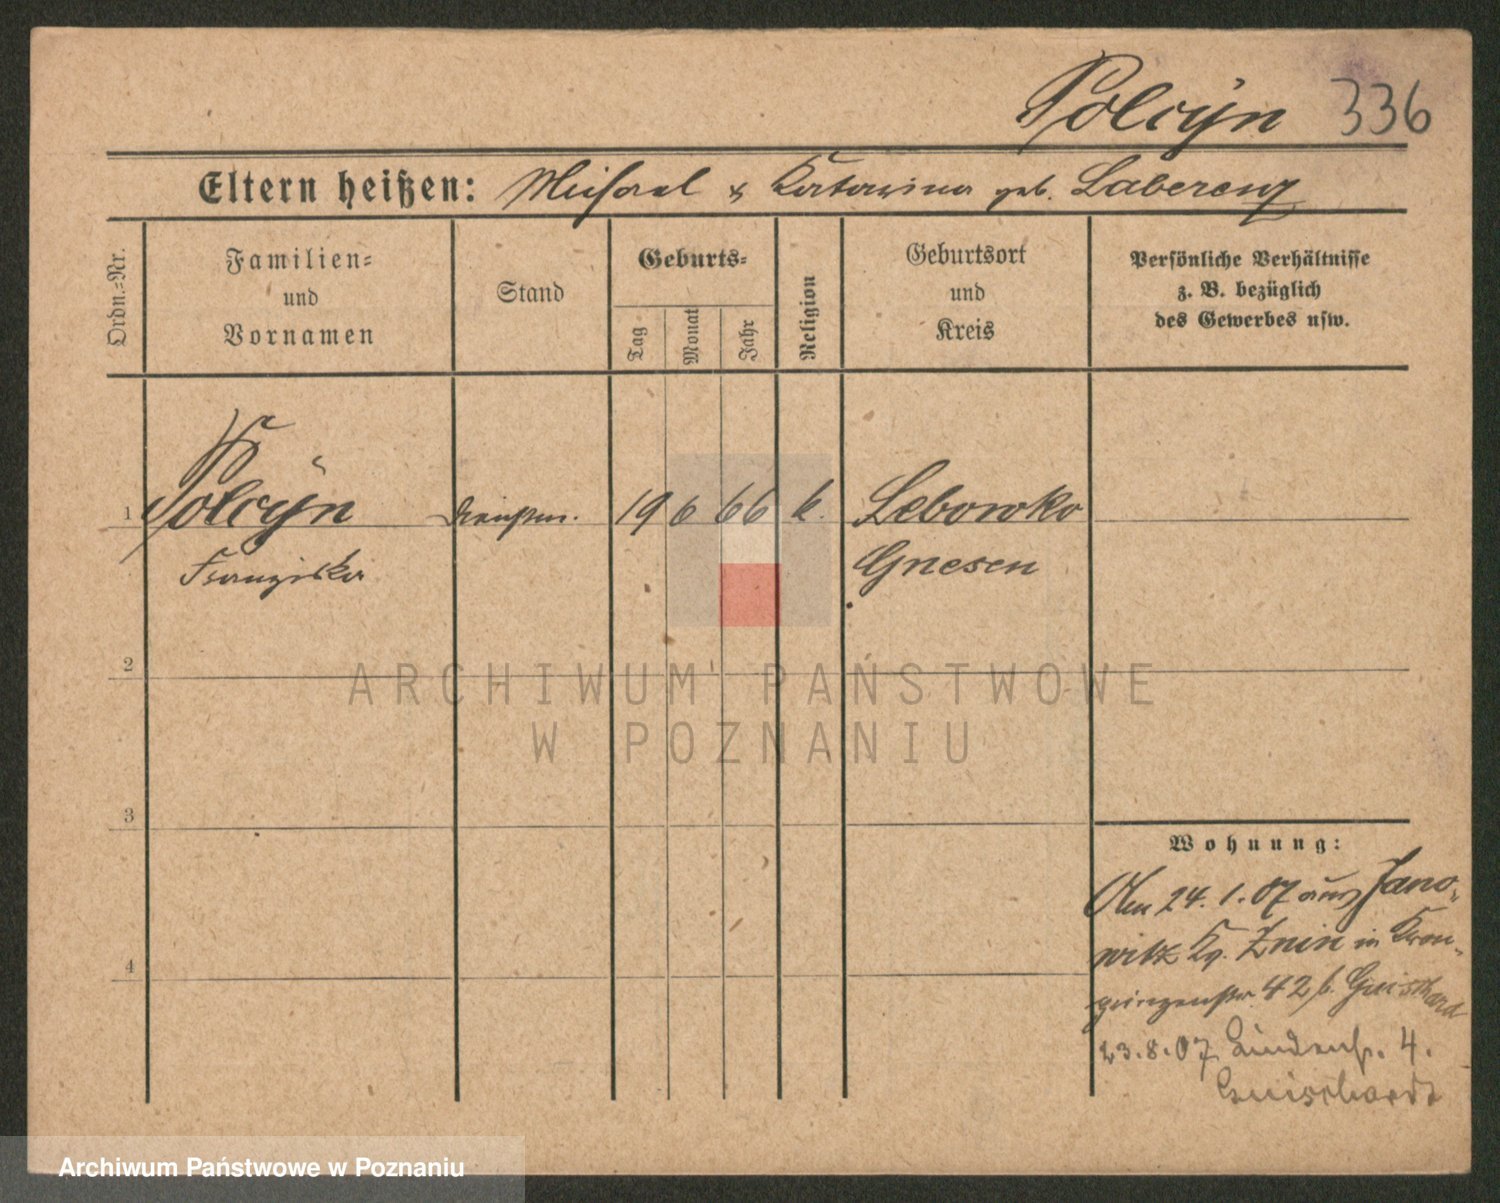 Polcÿn 336
Eltern heißen: Michael & Katarina geb. Laberenz
Ordn.-Nr.
Familien-
und
Vornamen
Stand
Geburts-
Tag
Monat
Jahr
Religion
Geburtsort
und
Kreis
Persönliche Verhältnisse
z. B. bezüglich
des Gewerbes usw.
1 Polcÿn Dienstm. 19 6 66 k. Lebowko
Franziska Gnesen
2
3
4
Wohnung:
Am 24.1.07 aus Jano-
witz Kr. Znin in Kron-
prinzenstr 42 b.
23.8.07 Lindenstr. 4.
ARCHIWUM PAŃSTWOWE
W POZNANIU
Archiwum Państwowe w Poznaniu